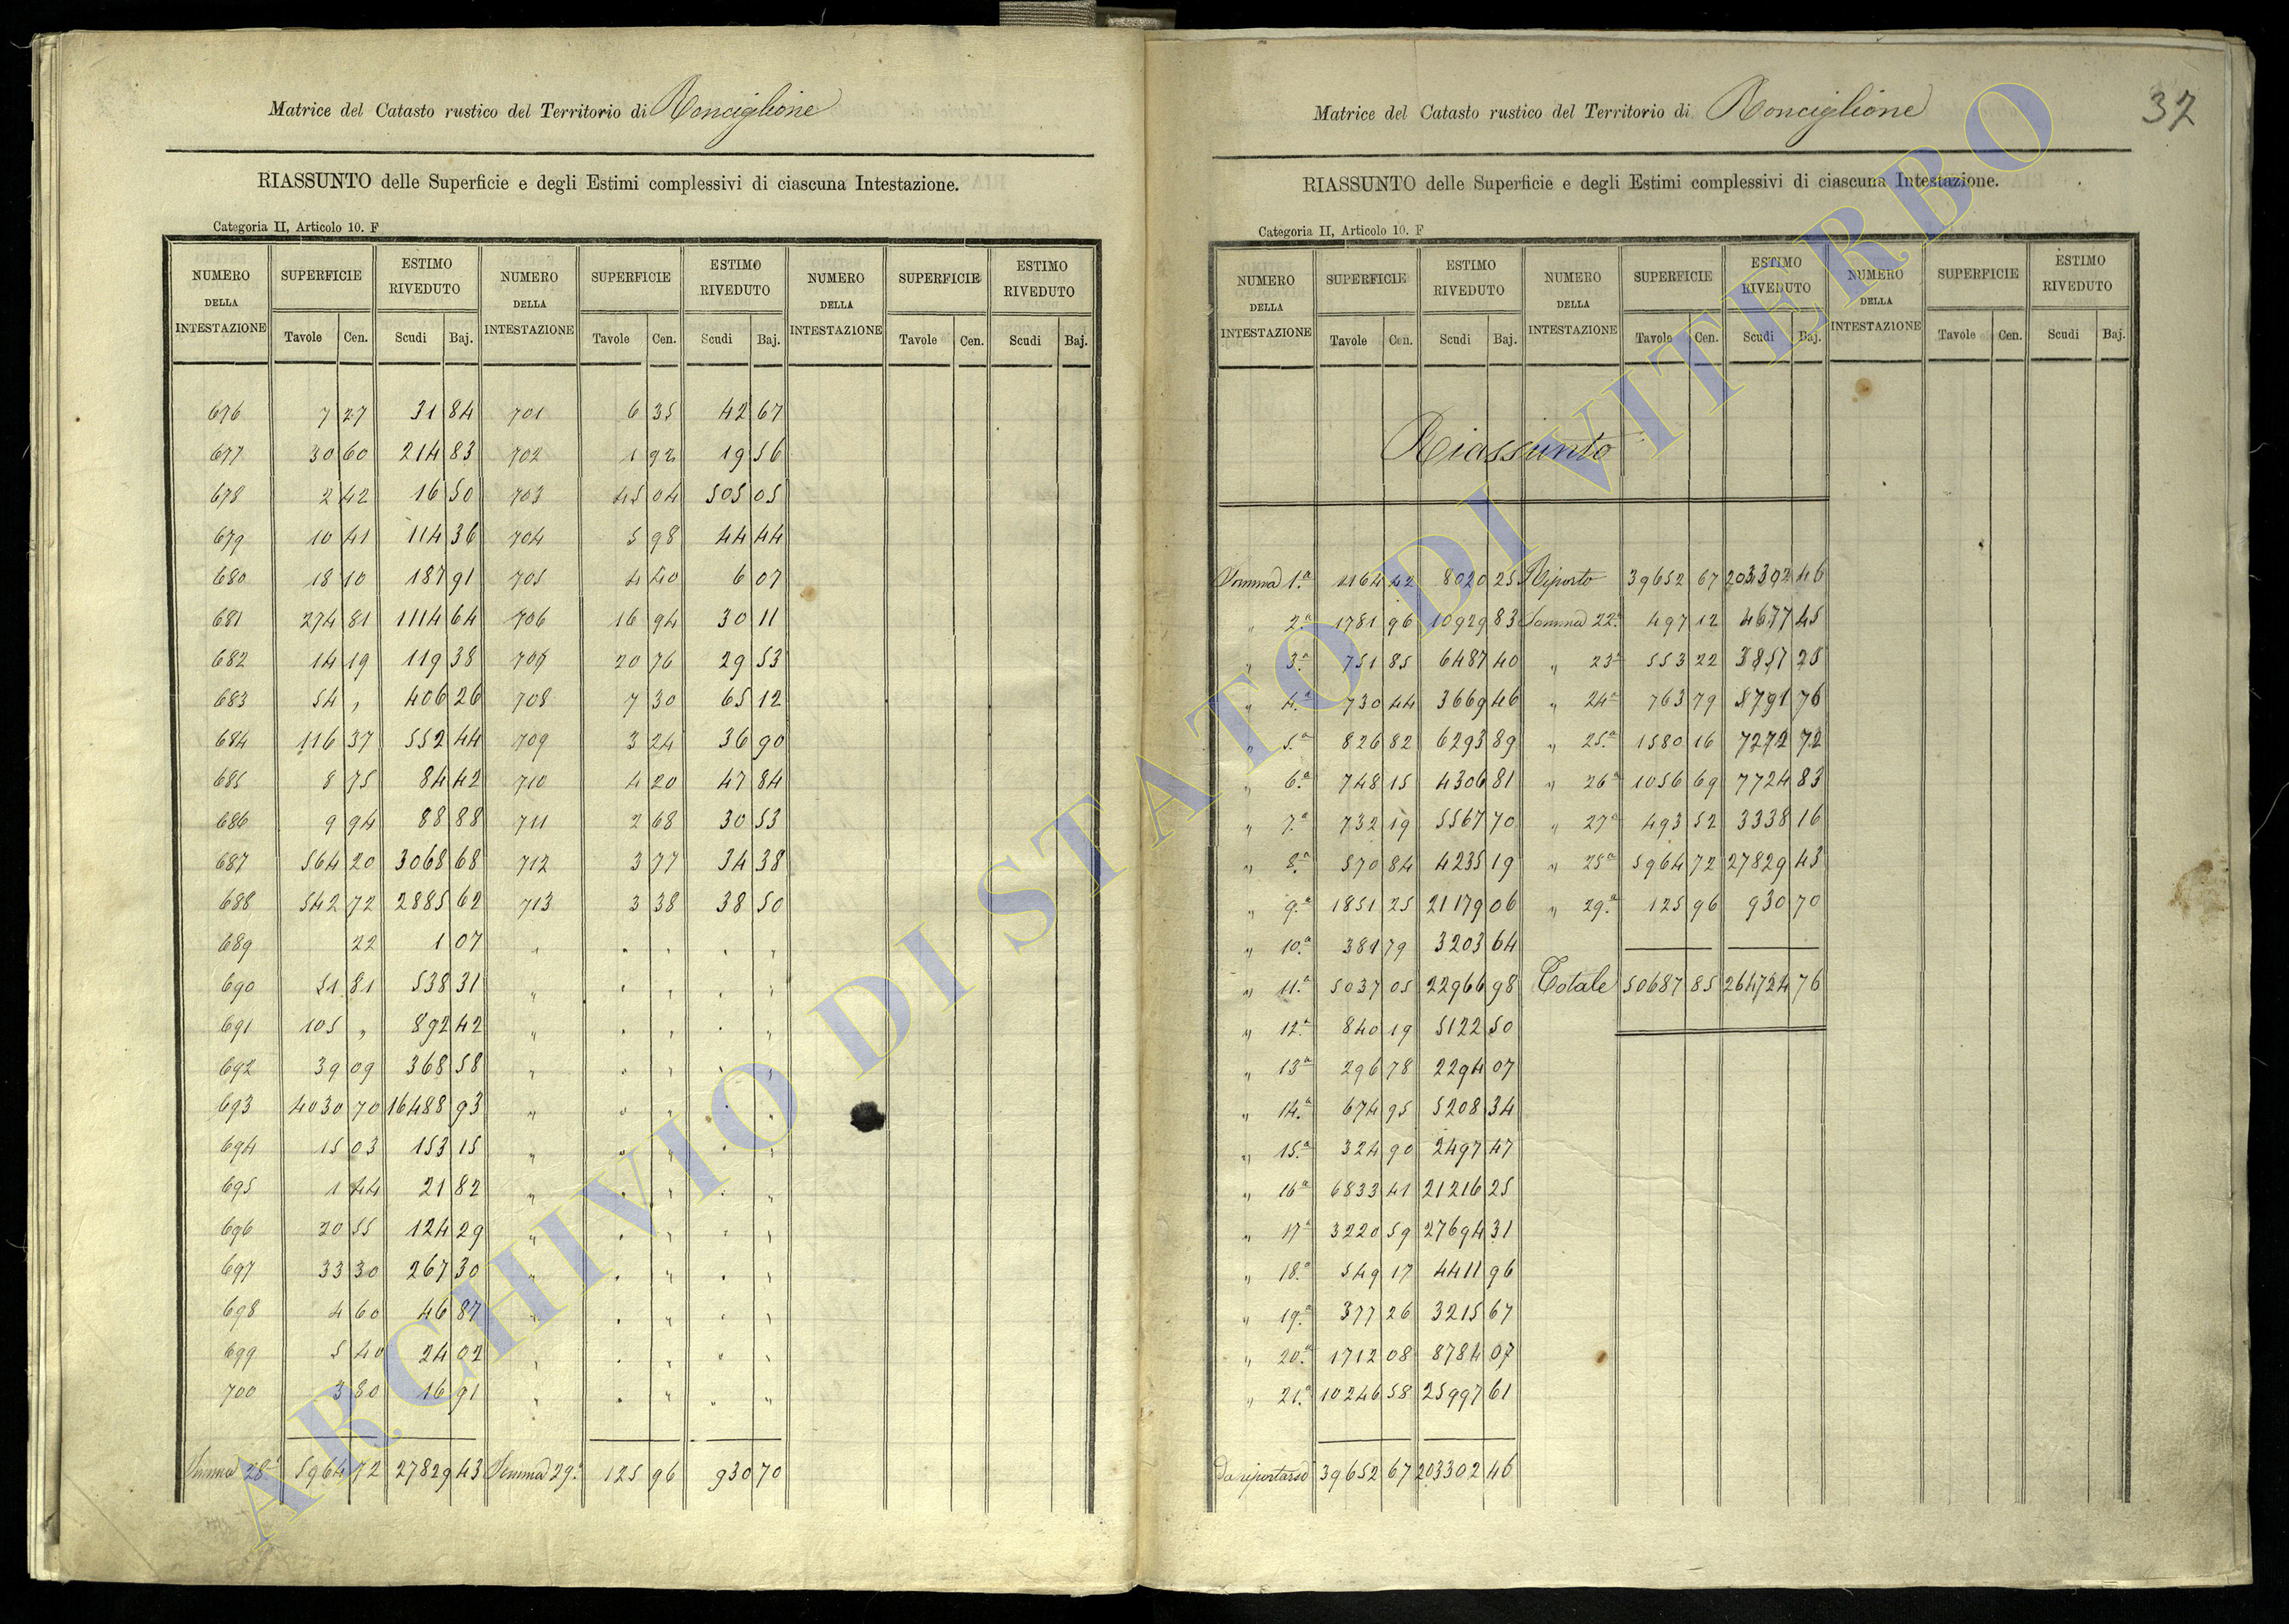 Matrice del Catasto rustico del Territorio di Ronciglione
RIASSUNTO delle Superficie e degli Estimi complessivi di ciascuna Intestazione.
Categoria II, Articolo 10. F
NUMERO DELLA INTESTAZIONE SUPERFICIE ESTIMO RIVEDUTO NUMERO DELLA INTESTAZIONE SUPERFICIE ESTIMO RIVEDUTO NUMERO DELLA INTESTAZIONE SUPERFICIE ESTIMO RIVEDUTO
Tavole Cen. Scudi Baj. Tavole Cen. Scudi Baj. Tavole Cen. Scudi Baj.
676 7 27 31 84 701 6 35 42 67
677 30 60 214 83 702 1 92 19 56
678 2 42 16 50 703 45 04 505 05
679 10 41 114 36 704 5 98 44 44
680 18 10 187 91 705 4 40 6 07
681 274 81 1114 64 706 16 94 30 11
682 14 19 119 38 707 20 76 29 53
683 54 " 406 26 708 7 30 65 12
684 116 37 552 44 709 3 24 36 90
685 8 75 84 42 710 4 20 47 84
686 9 94 88 88 711 2 68 30 53
687 564 20 3068 68 712 3 77 34 38
688 542 72 2885 62 713 3 38 38 50
689 22 1 07 " " " " "
690 51 81 538 31 " " " " "
691 105 " 892 42 " " " " "
692 39 09 368 58 " " " " "
693 4030 70 16488 93 " " " " "
694 15 03 153 15 " " " " "
695 1 44 21 82 " " " " "
696 20 55 124 29 " " " " "
697 33 30 267 30 " " " " "
698 4 60 46 87 " " " " "
699 5 40 24 02 " " " " "
700 3 80 16 91 " " " " "
Somma 28ª 5964 72 27829 43 Somma 29ª 125 96 930 70
Matrice del Catasto rustico del Territorio di Ronciglione
37
RIASSUNTO delle Superficie e degli Estimi complessivi di ciascuna Intestazione.
Categoria II, Articolo 10. F
NUMERO DELLA INTESTAZIONE SUPERFICIE ESTIMO RIVEDUTO NUMERO DELLA INTESTAZIONE SUPERFICIE ESTIMO RIVEDUTO NUMERO DELLA INTESTAZIONE SUPERFICIE ESTIMO RIVEDUTO
Tavole Cen. Scudi Baj. Tavole Cen. Scudi Baj. Tavole Cen. Scudi Baj.
Riassunto
Somma 1.ª 1164 42 8020 25 Riporto 39652 67 203302 46
" 2.ª 1781 96 10929 83 Somma 22.ª 497 12 4677 45
" 3.ª 751 85 6487 40 " 23ª 553 22 3857 25
" 4.ª 730 44 3669 46 " 24ª 763 79 5791 76
" 5.ª 826 82 6293 89 " 25.ª 1580 16 7272 72
" 6.ª 748 15 4306 81 " 26ª 1056 69 7724 83
" 7.ª 732 19 5567 70 " 27ª 493 52 3338 16
" 8.ª 570 84 4235 19 " 28ª 5964 72 27829 43
" 9.ª 1851 25 21179 06 " 29.ª 125 96 930 70
" 10.ª 381 79 3203 64
" 11.ª 5037 05 22966 98 Totale 50687 85 264724 76
" 12.ª 840 19 5122 50
" 13ª 296 78 2294 07
" 14.ª 674 95 5208 34
" 15.ª 324 90 2497 47
" 16ª 6833 41 21216 25
" 17ª 3220 59 27694 31
" 18.ª 549 17 4411 96
" 19.ª 377 26 3215 67
" 20.ª 1712 08 8784 07
" 21.ª 10246 58 25997 61
Da riportarsi 39652 67 203302 46
ARCHIVIO DI STATO DI VITERBO